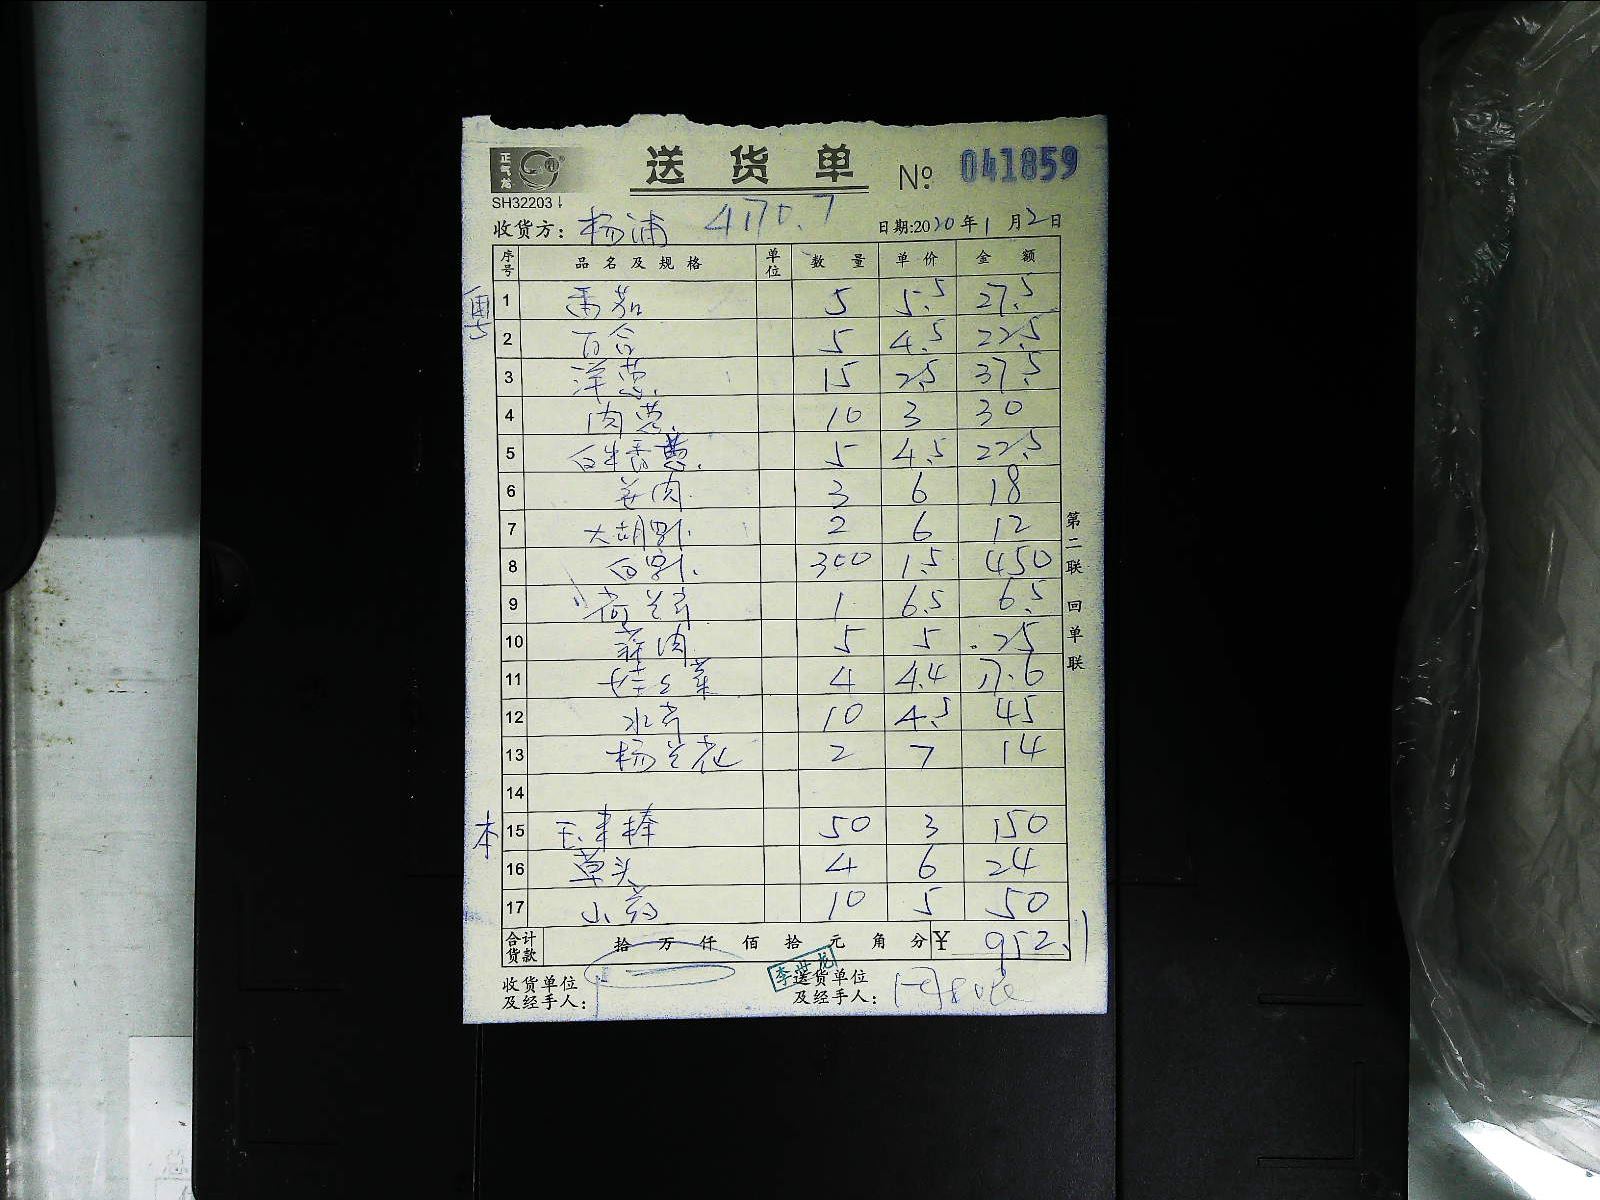 正气龙
送货单 № 041859
SH32203
收货方: 杨浦 4170.7 日期:2020年1月2日
序号 品名及规格 单位 数量 单价 金额
1 番茄 5 5.5 27.5
2 百合 5 4.5 22.5
3 洋葱 15 2.5 37.5
4 肉葱 10 3 30
5 白米香葱 5 4.5 22.5
6 姜肉 3 6 18
7 大胡 2 6 12
8 白 300 1.5 450
9 荷兰芹 1 6.5 6.5
10 蒜肉 5 5 25
11 4 4.4 17.6
12 水芹 10 4.5 45
13 杨兰花 2 7 14
14
本 15 玉米棒 50 3 150
16 草头 4 6 24
17 山药 10 5 50
合计货款 拾 万 仟 佰 拾 元 角 分 ¥ 952.1
收货单位及经手人: 送货单位及经手人:
第二联 回单联